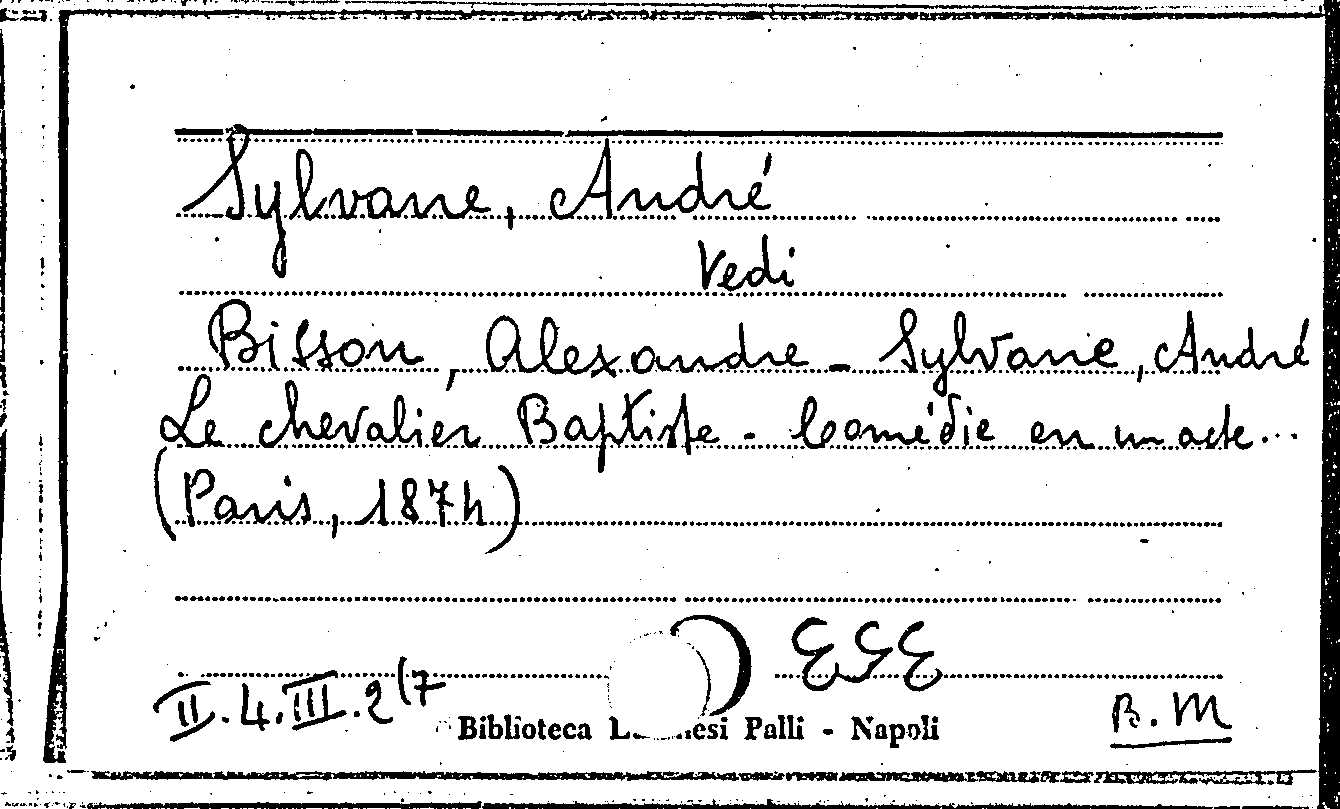 Sylvane, André
Vedi
Bisson, Alexandre - Sylvane, André
Le chevalier Baptiste - Comédie en un acte...
(Paris, 1874)
II.4.III.2(7
Biblioteca Palli - Napoli
B.M